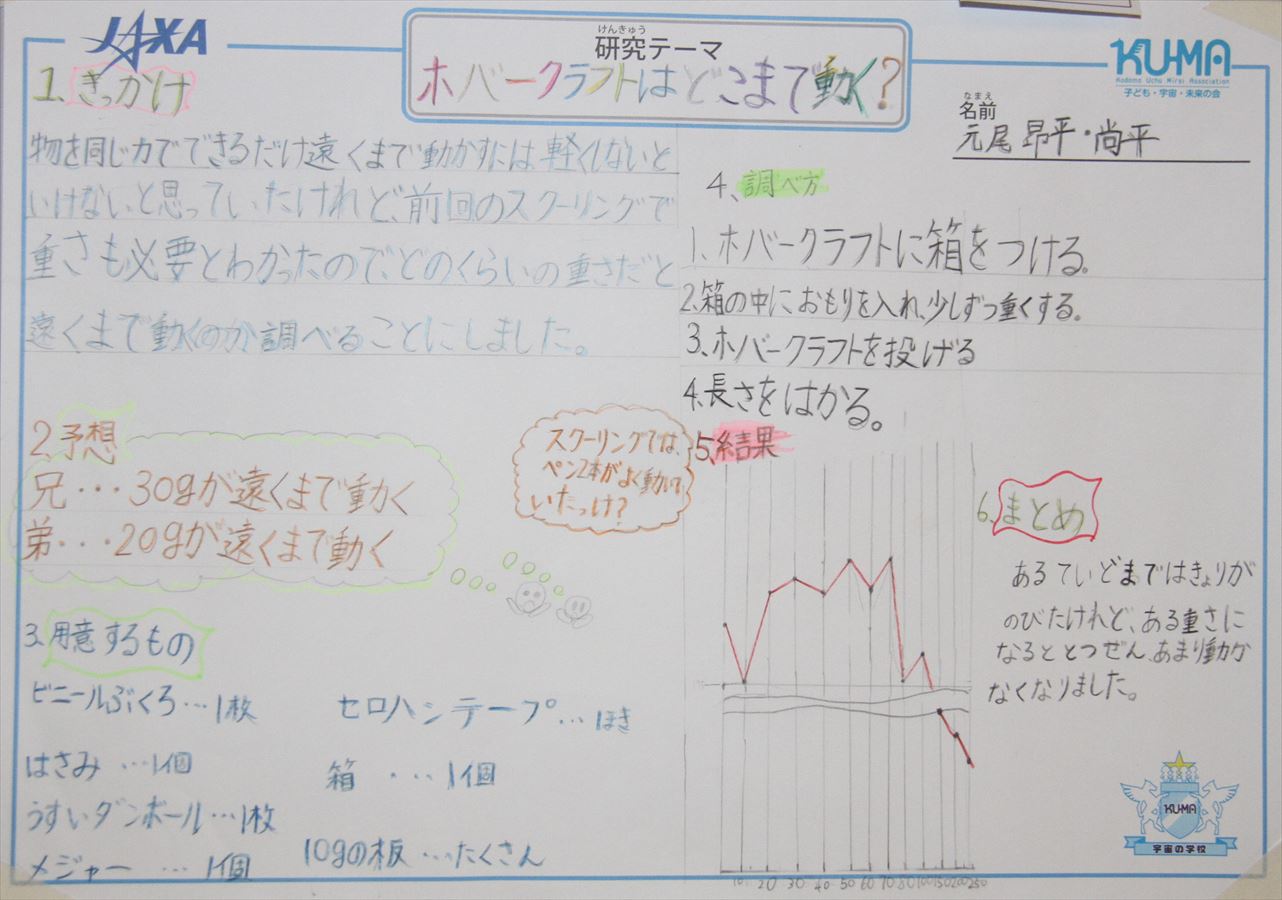 JAXA
けんきゅう
研究テーマ
ホバークラフトはどこまで動く?
KU-MA
Kodomo Uchu Mirai Association
子ども・宇宙・未来の会
なまえ
名前
元尾 昂平・尚平
1、きっかけ
物を同じ力でできるだけ遠くまで動かすには軽くしないと
いけないと思っていたけれど、前回のスクーリングで
重さも必要とわかったので、どのくらいの重さだと
遠くまで動くのか調べることにしました。
2、予想
兄・・・30gが遠くまで動く
弟・・・20gが遠くまで動く
スクーリングでは、
ペン2本がよく動いて
いたっけ?
3、用意するもの
ビニールぶくろ・・・1枚
はさみ・・・1個
うすいダンボール・・・1枚
メジャー・・・1個
セロハンテープ・・・1まき
箱・・・1個
10gの板・・・たくさん
4、調べ方
1、ホバークラフトに箱をつける。
2、箱の中におもりを入れ、少しずつ重くする。
3、ホバークラフトを投げる
4、長さをはかる。
5、結果
10 20 30 40 50 60 70 80 100 150 200 250
6、まとめ
あるていどまではきょりが
のびたけれど、ある重さに
なるととつぜん、あまり動か
なくなりました。
KU-MA
宇宙の学校